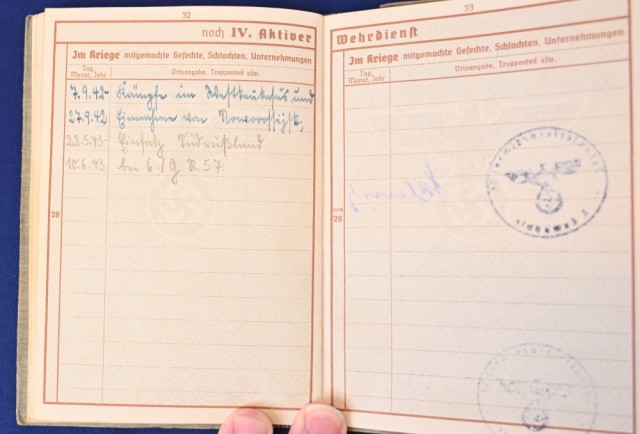 32
noch IV. Aktiver
Im Kriege mitgemachte Gefechte, Schlachten, Unternehmungen
Tag, Monat, Jahr
Ortsangabe, Truppenteil usw.
7.9.42- Kämpfe im Westkaukasus und
27.9.42 Einnahme von Noworossijsk;
28.5.43- Einsatz Südrußland
10.6.43 bei 6./G.R. 57
28
33
Wehrdienst
Im Kriege mitgemachte Gefechte, Schlachten, Unternehmungen
Tag, Monat, Jahr
Ortsangabe, Truppenteil usw.
noch
28